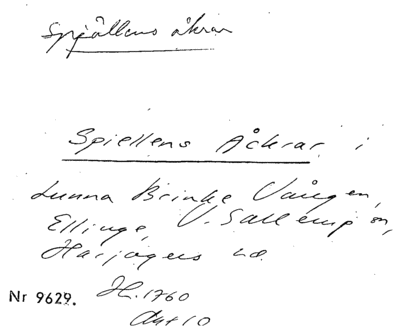 Spjällens åkrar
Spiellens Åckrar i
Lunna Brinke Vången,
Ellinge, V. Sallerup sn,
Harjagers hd.
Nr 9629. H. 1760
Akt 10